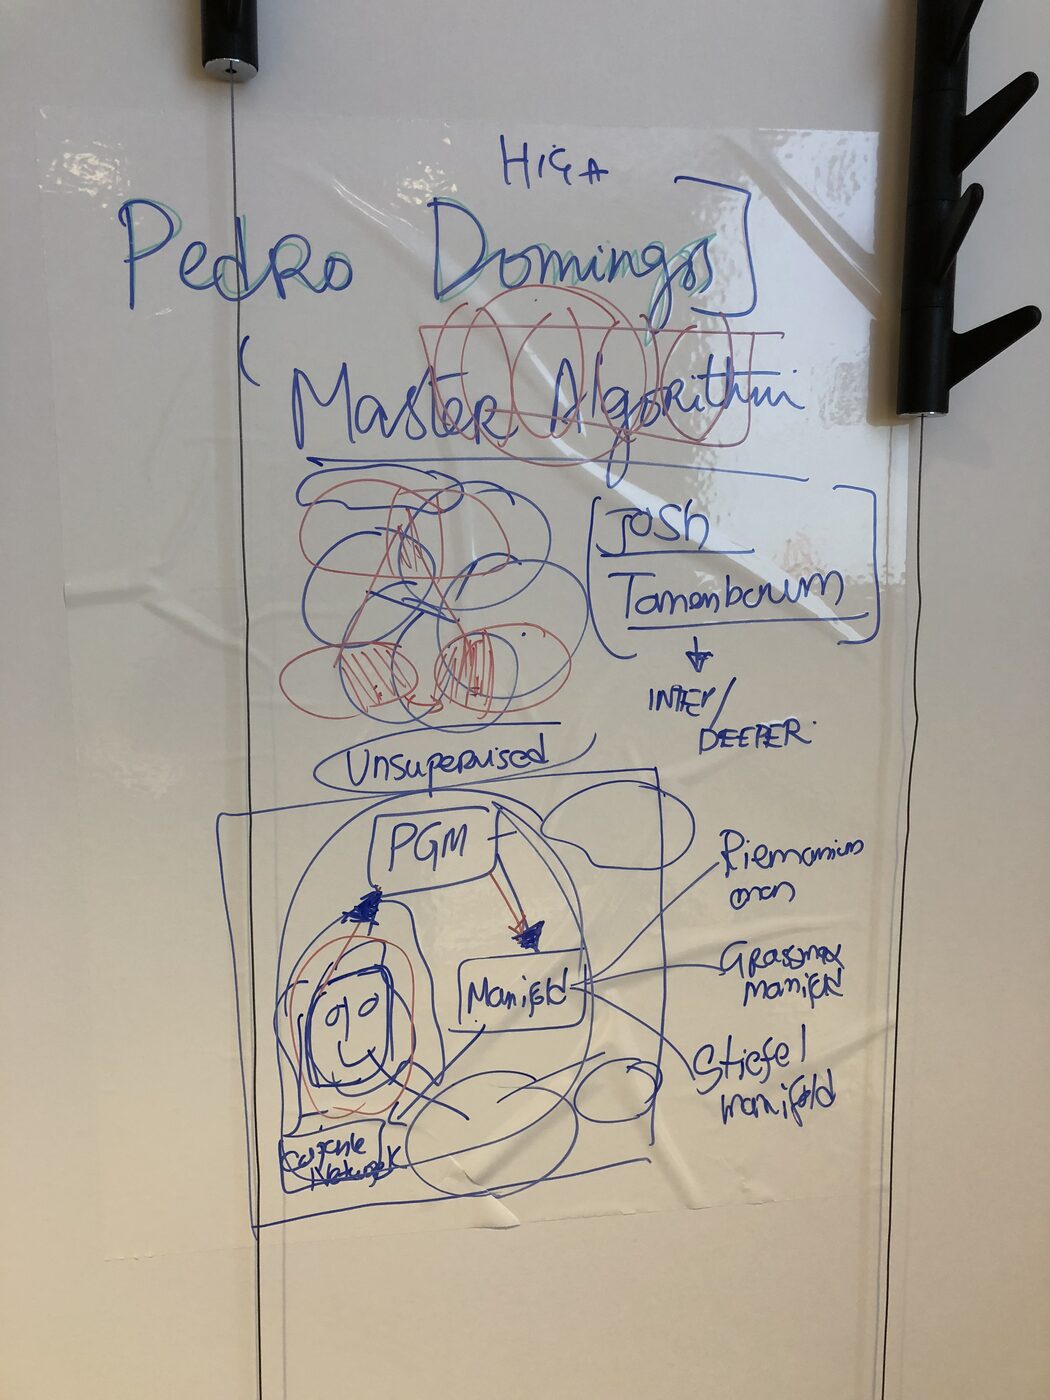 Pedro Domingos
Master Algorithm
Josh
Tanenbaum
INTER/
DEEPER
Unsupervised
PGM
Manifold
Riemannian
Grassman
manifold
Stiefel
manifold
Network